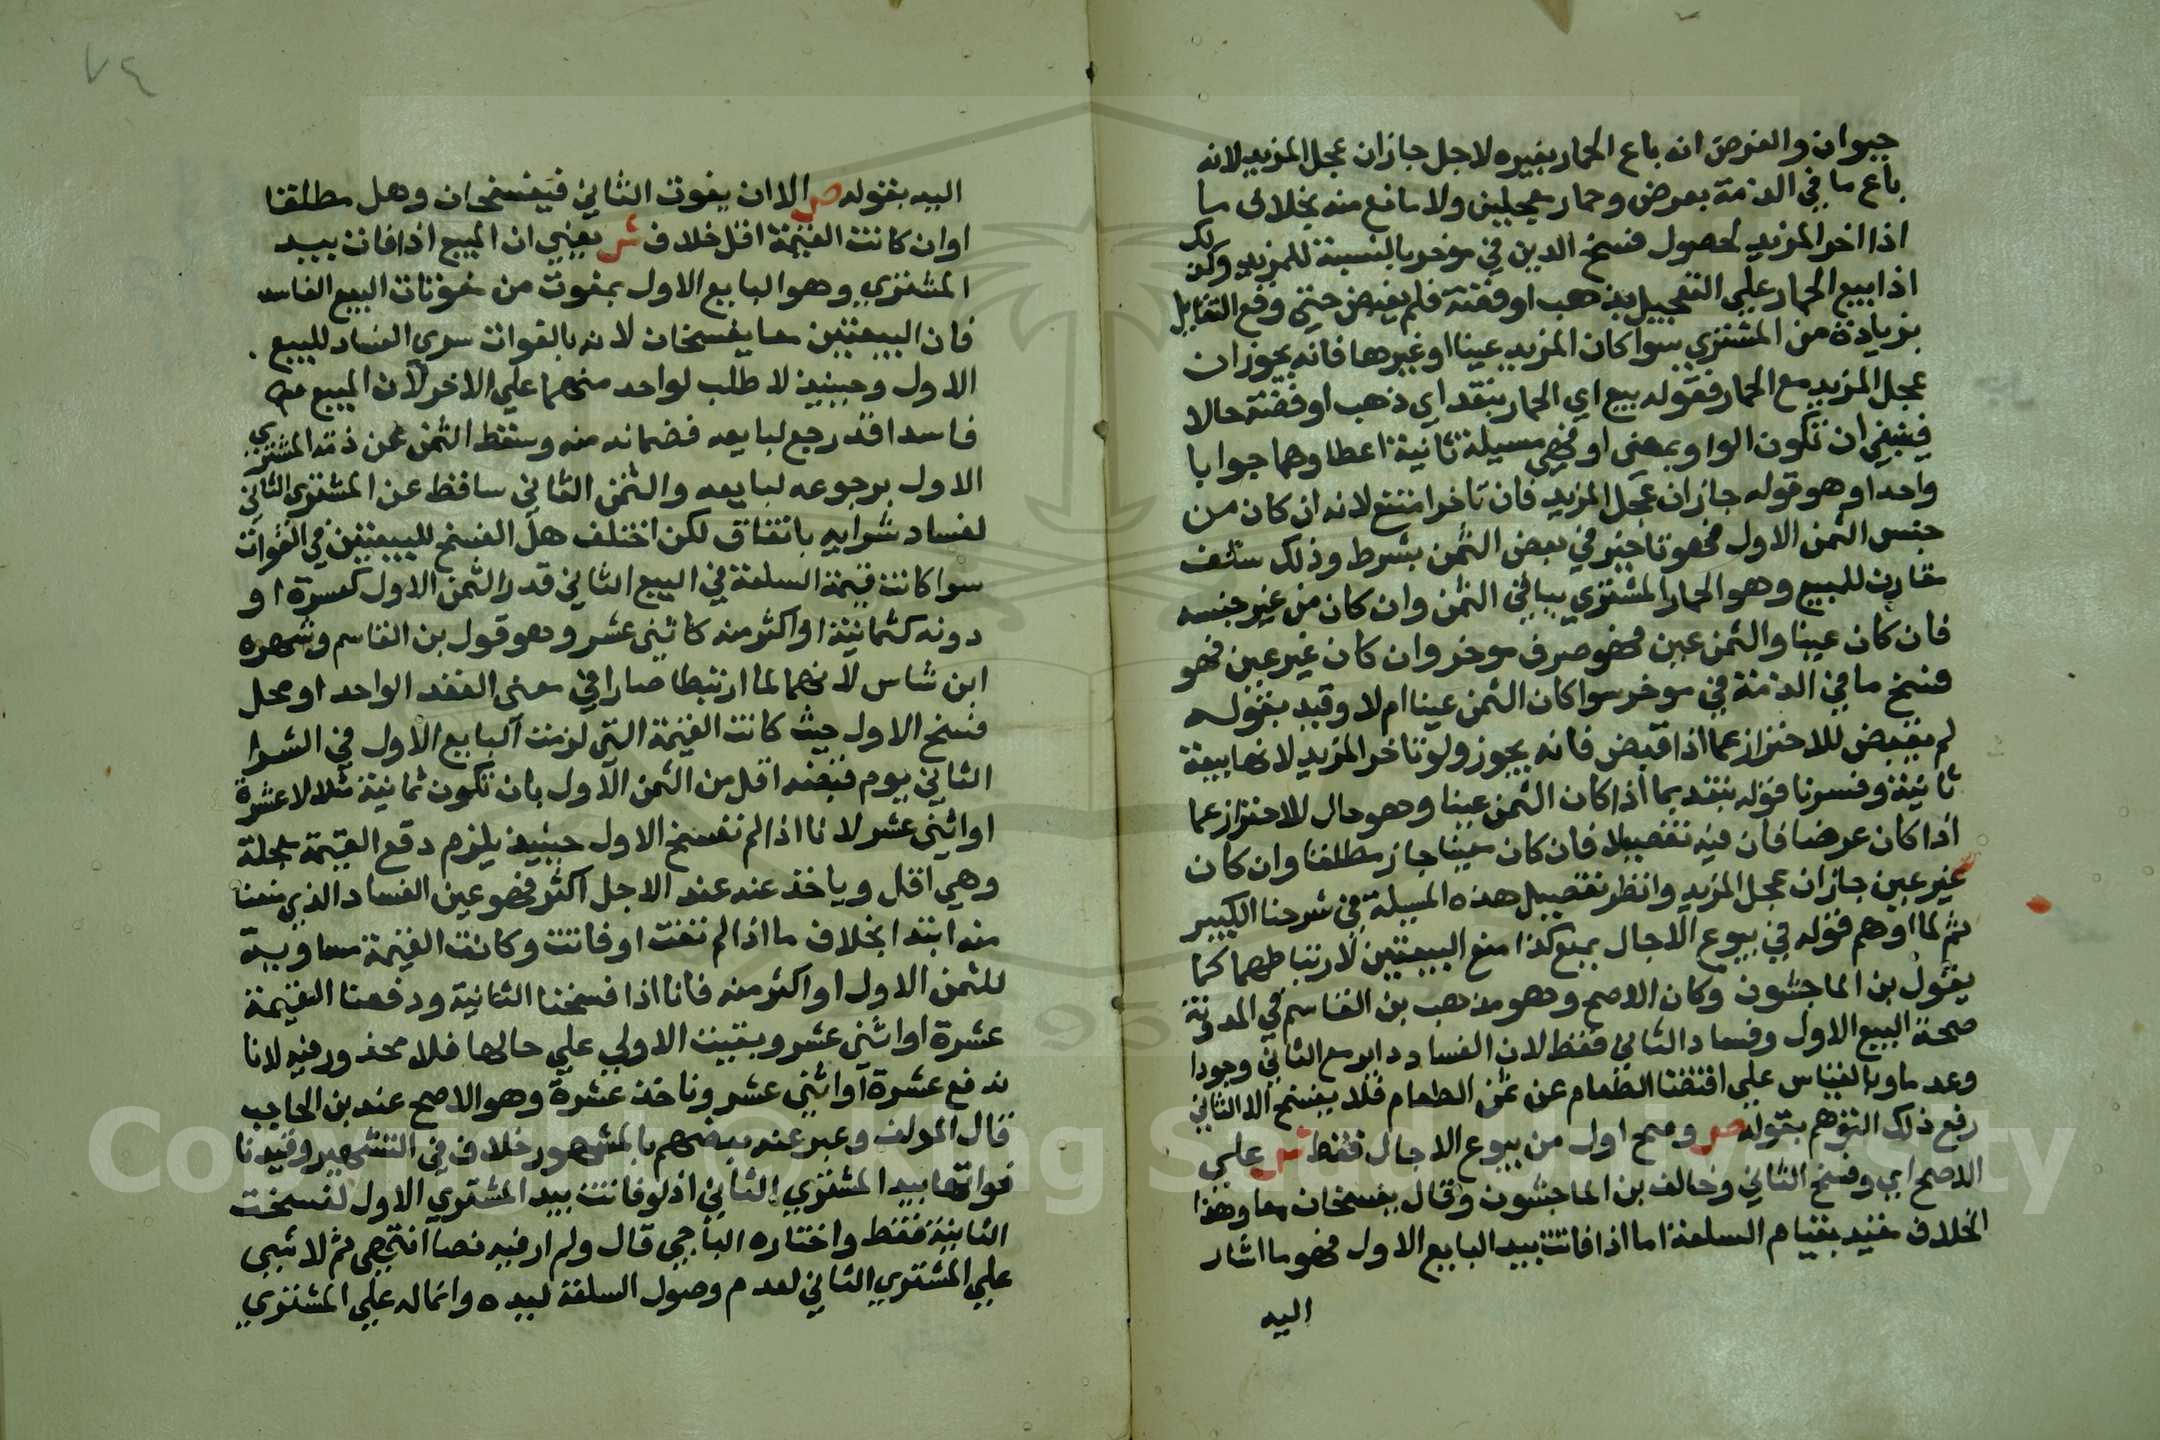 حيوان والفرض انه باع الحمار بغيره لاجل جاز ان عجل المزيد لانه
باع ما في الذمة بعرض وحمار معجلين ولا مانع منه بخلاف ما
اذا اخر المزيد لحصول فسخ الدين في موخر بالنسبة للمزيد وكذلك
اذا بيع الحمار علي التعجيل بذهب او فضة فلم يقبض حتى وقع التقايل
بزيادة من المشتري سوا كان المزيد عينا او غيرها فانه يجوز ان
عجل المزيد مع الحمار فقوله بيع اي الحمار بنقد اي ذهب او فضة حالا
فينبغي ان تكون الواو بمعنى او فهي مسيلة ثانية اعطاوهما جوابا
واحدا وهو قوله جاز ان عجل المزيد فان تاخر امتنع لانه ان كان من
جنس الثمن الاول فهو تاخير في بعض الثمن بشرط وذلك سلف
مقارن للبيع وهو الحمار المشتري بباقي الثمن وان كان من غير جنسه
فان كان عينا والثمن عين فهو صرف موخر وان كان غير عين فهو
فسخ ما في الذمة في موخر سوا كان الثمن عينا ام لا وقيد بقوله
لم يقبض للاحتراز عما اذا قبض فانه يجوز ولو تاخر المزيد لانها بيعة
ثانية وفسرنا قوله بنقد بما اذا كان الثمن عينا وهو حال للاحتراز عما
اذا كان عرضا فان فيه تفصيلا فان كان معينا جاز مطلقا وان كان
غير عين جاز ان عجل المزيد وانظر تفصيل هذه المسيلة في شرحنا الكبير
ثم لما اوهم قوله في بيوع الاجال يمنع كذا منع البيعتين لارتباطهما كما
يقول بن الماجشون وكان الاصح وهو مذهب بن القاسم في المدونة
صحة البيع الاول وفساد الثاني فقط لان الفساد داير مع الثاني وجودا
وعدما وبالقياس علي اقتضا الطعام عن ثمن الطعام فلا يفسخ الا الثاني
رفع ذلك التوهم بقوله ص وصح اول من بيوع الاجال فقط ش علي
الاصح اي وفسخ الثاني وخالف بن الماجشون وقال يفسخان معا وهذا
الخلاف مقيد بقيام السلعة اما اذا فاتت بيد البايع الاول فهو ما اشار
اليه
٧٤
اليه بقوله ص الا ان يفوت الثاني فيفسخان وهل مطلقا
او ان كانت القيمة اقل خلاف ش يعني ان المبيع اذا فات بيد
المشتري وهو البايع الاول بمفوت من مفوتات البيع الفاسد
فان البيعتين معا يفسخان لانه بالفوات سري الفساد للبيع
الاول وحينيذ لا طلب لواحد منهما علي الاخر لان المبيع
فاسدا قد رجع لبايعه فضمانه منه وسقط الثمن عن ذمة المشتري
الاول برجوعه لبايعه والثمن الثاني ساقط عن المشتري الثاني
لفساد شرايه باتفاق لكن اختلف هل الفسخ للبيعتين في الفوات
سوا كانت قيمة السلعة في البيع الثاني قدر الثمن الاول كعسرة او
دونه كثمانية او اكثر منه كاثني عشر وهو قول بن القاسم وشهره
ابن شاس لانهما لما ارتبطا صارا في معنى العقد الواحد او محل
فسخ الاول حيث كانت القيمة التي لزمت البايع الاول في الشرا
الثاني يوم قبضه اقل من الثمن الاول بان تكون ثمانية مثلا لا عشرة
او اثني عشر لانا اذا لم نفسخ الاول حينيذ يلزم دفع القيمة معجلة
وهي اقل وياخذ عنه عند الاجل اكثر فهو عين الفساد الذي منعنا
منه ابتدا بخلاف ما اذا لم تفت او فاتت وكانت القيمة مساوية
للثمن الاول او اكثر منه فانا اذا فسخنا الثانية ودفعنا القيمة
عشرة او اثني عشر وبقيت الاولي علي حالها فلا محذور فيه لانا
ندفع عشرة او اثني عشر وناخذ عشرة وهو الاصح عند بن الحاجب
قال المولف وعبر عنه بعضهم بالمشهور خلاف في التشهير وقيدنا
فواتها بيد المشتري الثاني اذ لو فاتت بيد المشتري الاول لفسخت
الثانية فقط واختاره الباجي قال ولم ار فيه نصا انتهي ثم لا شي
علي المشتري الثاني لعدم وصول السلعة ليده وانما له علي المشتري
Copyright © King Saud University